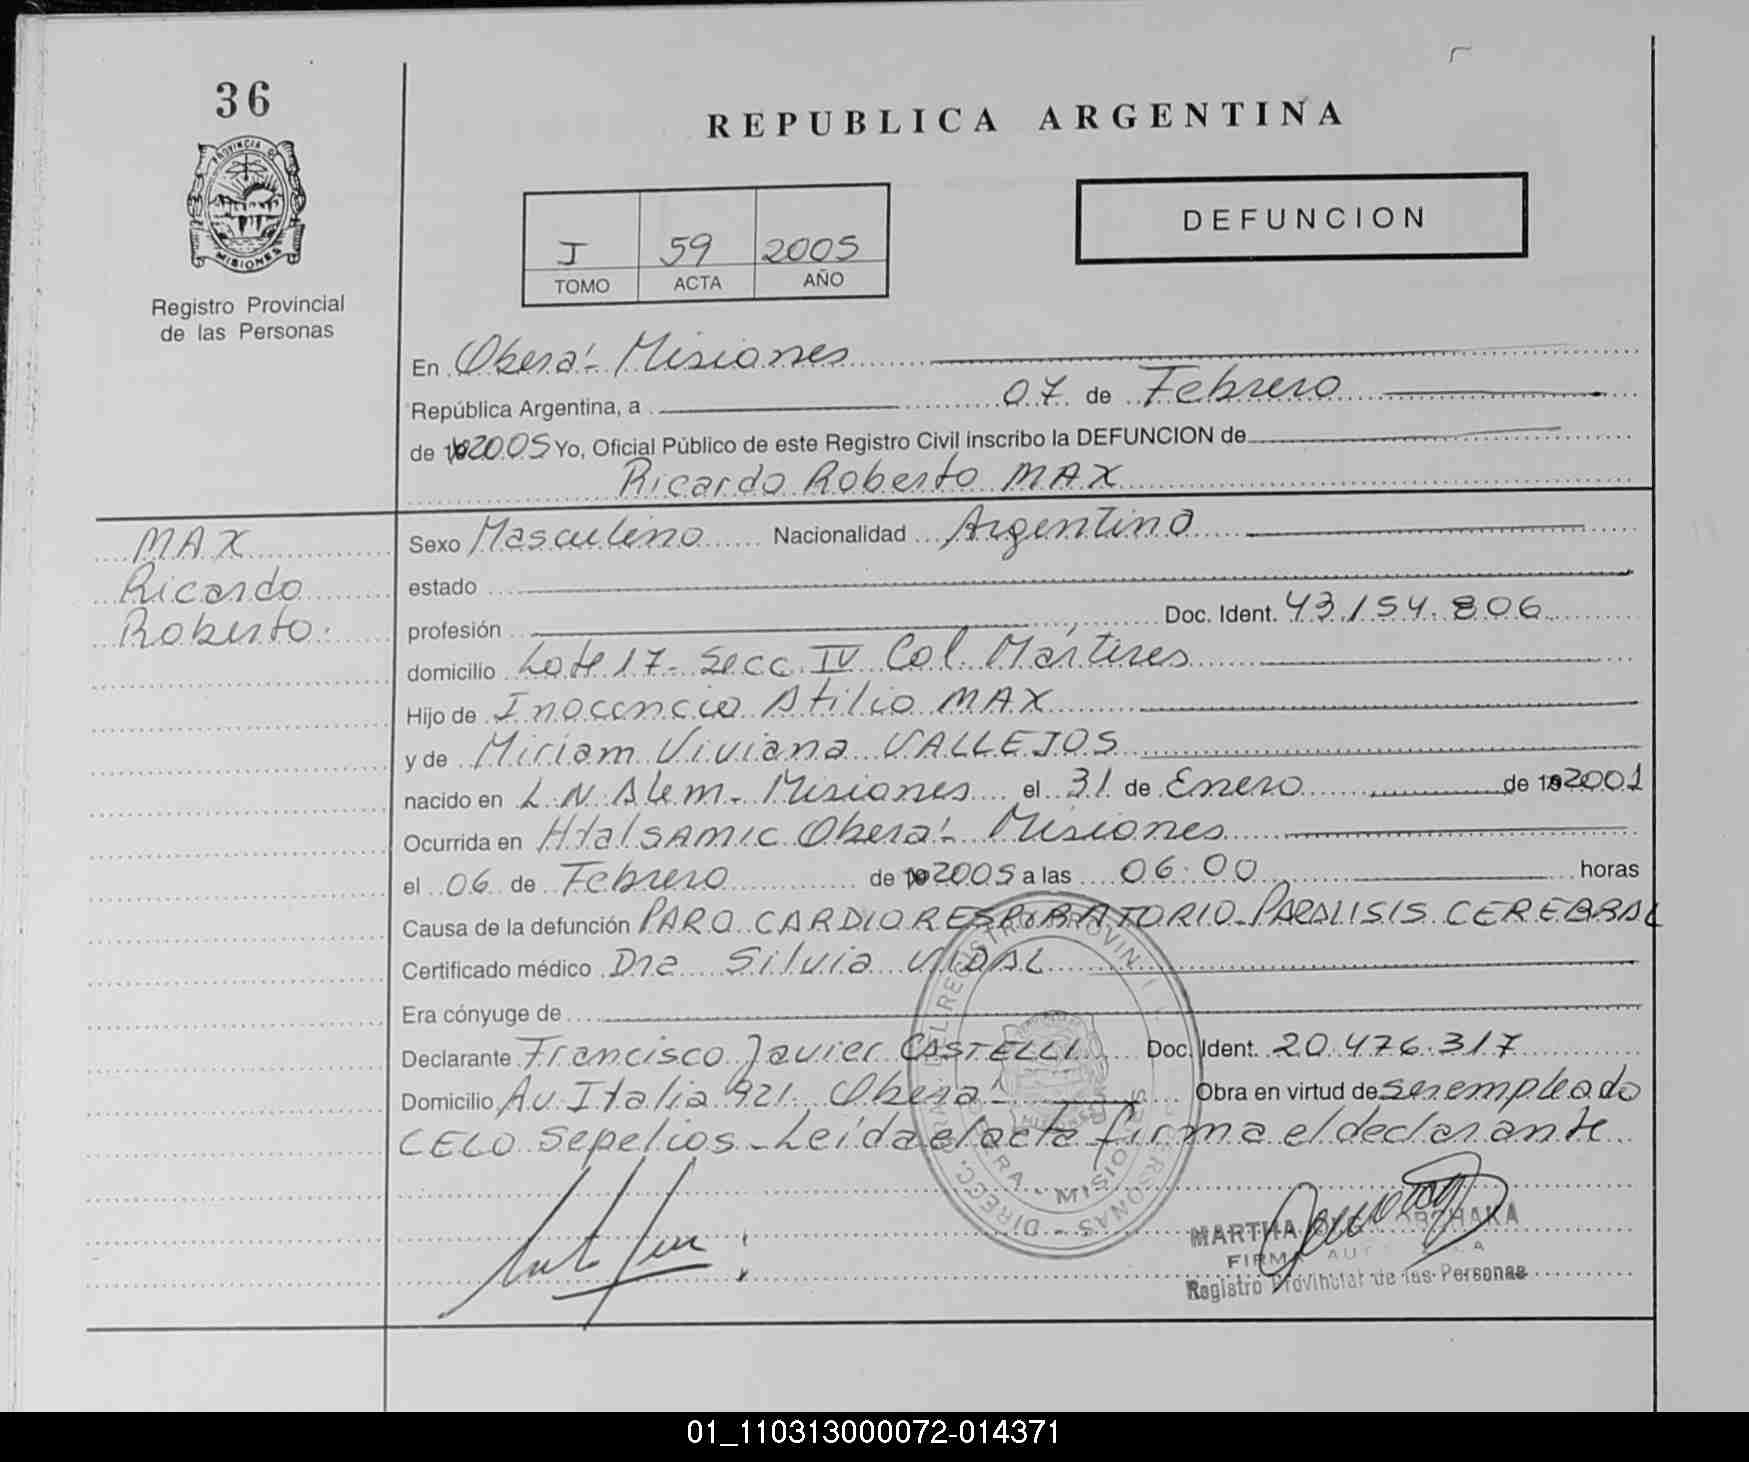 36
PROVINCIA DE
MISIONES
Registro Provincial
de las Personas
REPUBLICA ARGENTINA
I 59 2005
TOMO ACTA AÑO
DEFUNCION
En Oberá - Misiones
República Argentina, a 07 de Febrero
de 2005 Yo, Oficial Público de este Registro Civil inscribo la DEFUNCION de
Ricardo Roberto MAX
MAX
Ricardo
Roberto.
Sexo Masculino Nacionalidad Argentino
estado
profesión Doc. Ident. 43.154.806
domicilio Lote 17 - Secc. IV Col. Mártires
Hijo de Inocencio Atilio MAX
y de Miriam Viviana VALLEJOS
nacido en L.N. Alem - Misiones el 31 de Enero de 2001
Ocurrida en Htal SAMIC Oberá - Misiones
el 06 de Febrero de 2005 a las 06:00 horas
Causa de la defunción PARO CARDIORESPIRATORIO - PARALISIS CEREBRAL
Certificado médico Dra Silvia VIDAL
Era cónyuge de
Declarante Francisco Javier CASTELLI Doc. Ident. 20.476.317
Domicilio Av. Italia 921 Oberá Obra en virtud de ser empleado
CELO Sepelios - Leída el acta firma el declarante
MARTHA
FIRMA AUT
Registro Provincial de las Personas
01_110313000072-014371